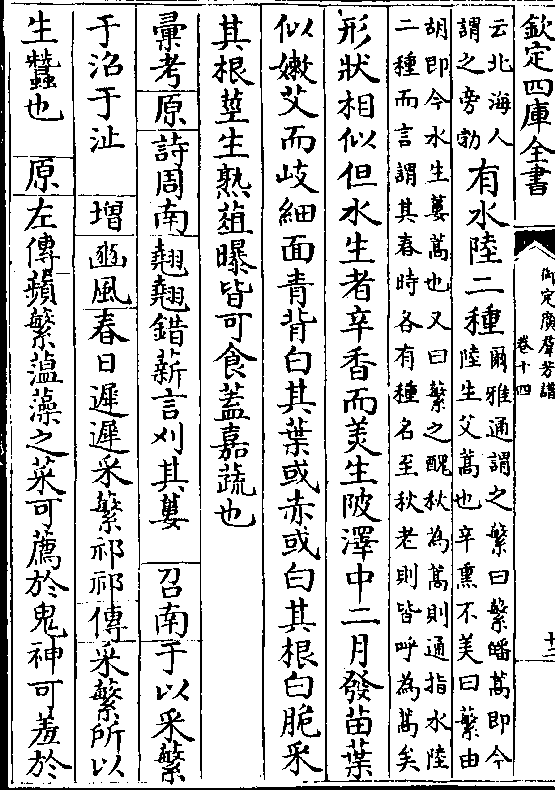 欽定四庫全書
御定廣羣芳譜
卷十四
十二
云北海人
謂之旁勃
有水陸二種
爾雅通謂之蘩曰蘩皤蒿即今
陸生艾蒿也辛熏不美曰蘩由
胡即今水生蔞蒿也又曰蘩之醜秋為蒿則通指水陸
二種而言謂其春時各有種名至秋老則皆呼為蒿矣
形狀相似但水生者辛香而美生陂澤中二月發苗葉
似嫩艾而岐細面青背白其葉或赤或白其根白脆采
其根莖生熟葅曝皆可食蓋嘉蔬也
彚考原詩周南翹翹錯薪言刈其蔞 召南于以采蘩
于沼于沚 增豳風春日遲遲采蘩祁祁傳采蘩所以
生蠶也 原左傳蘋蘩薀藻之菜可薦於鬼神可羞於